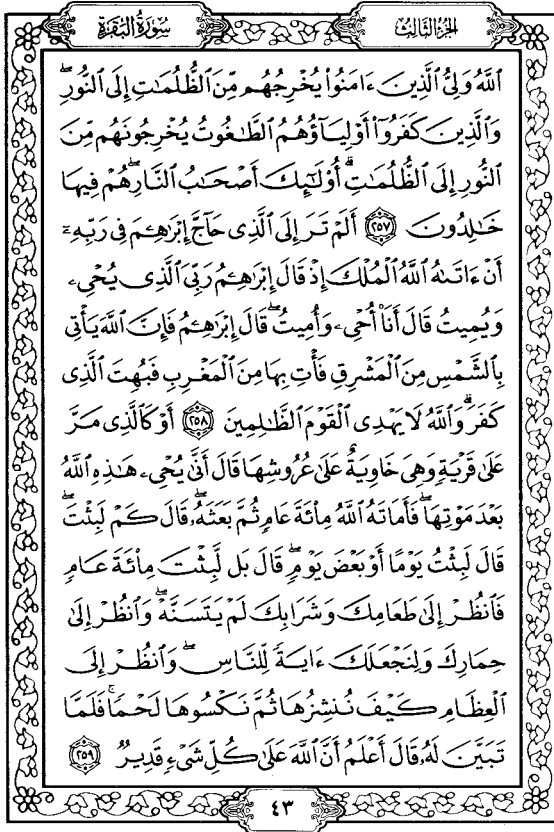 سُورَةُ البَقَرَةِ
الجُزءُ الثَّالِثُ
ٱللَّهُ وَلِيُّ ٱلَّذِينَ ءَامَنُوا۟ يُخْرِجُهُم مِّنَ ٱلظُّلُمَٰتِ إِلَى ٱلنُّورِ ۖ
وَٱلَّذِينَ كَفَرُوٓا۟ أَوْلِيَآؤُهُمُ ٱلطَّٰغُوتُ يُخْرِجُونَهُم مِّنَ
ٱلنُّورِ إِلَى ٱلظُّلُمَٰتِ ۗ أُو۟لَٰٓئِكَ أَصْحَٰبُ ٱلنَّارِ ۖ هُمْ فِيهَا
خَٰلِدُونَ ﴿٢٥٧﴾ أَلَمْ تَرَ إِلَى ٱلَّذِى حَآجَّ إِبْرَٰهِۦمَ فِى رَبِّهِۦٓ
أَنْ ءَاتَىٰهُ ٱللَّهُ ٱلْمُلْكَ إِذْ قَالَ إِبْرَٰهِۦمُ رَبِّىَ ٱلَّذِى يُحْىِۦ
وَيُمِيتُ قَالَ أَنَا۠ أُحْىِۦ وَأُمِيتُ ۖ قَالَ إِبْرَٰهِۦمُ فَإِنَّ ٱللَّهَ يَأْتِى
بِٱلشَّمْسِ مِنَ ٱلْمَشْرِقِ فَأْتِ بِهَا مِنَ ٱلْمَغْرِبِ فَبُهِتَ ٱلَّذِى
كَفَرَ ۗ وَٱللَّهُ لَا يَهْدِى ٱلْقَوْمَ ٱلظَّٰلِمِينَ ﴿٢٥٨﴾ أَوْ كَٱلَّذِى مَرَّ
عَلَىٰ قَرْيَةٍ وَهِىَ خَاوِيَةٌ عَلَىٰ عُرُوشِهَا قَالَ أَنَّىٰ يُحْىِۦ هَٰذِهِ ٱللَّهُ
بَعْدَ مَوْتِهَا ۖ فَأَمَاتَهُ ٱللَّهُ مِا۟ئَةَ عَامٍ ثُمَّ بَعَثَهُۥ ۖ قَالَ كَمْ لَبِثْتَ ۖ
قَالَ لَبِثْتُ يَوْمًا أَوْ بَعْضَ يَوْمٍ ۖ قَالَ بَل لَّبِثْتَ مِا۟ئَةَ عَامٍ
فَٱنظُرْ إِلَىٰ طَعَامِكَ وَشَرَابِكَ لَمْ يَتَسَنَّهْ ۖ وَٱنظُرْ إِلَىٰ
حِمَارِكَ وَلِنَجْعَلَكَ ءَايَةً لِّلنَّاسِ ۖ وَٱنظُرْ إِلَى
ٱلْعِظَامِ كَيْفَ نُنشِزُهَا ثُمَّ نَكْسُوهَا لَحْمًا ۚ فَلَمَّا
تَبَيَّنَ لَهُۥ قَالَ أَعْلَمُ أَنَّ ٱللَّهَ عَلَىٰ كُلِّ شَىْءٍ قَدِيرٌ ﴿٢٥٩﴾
٤٣